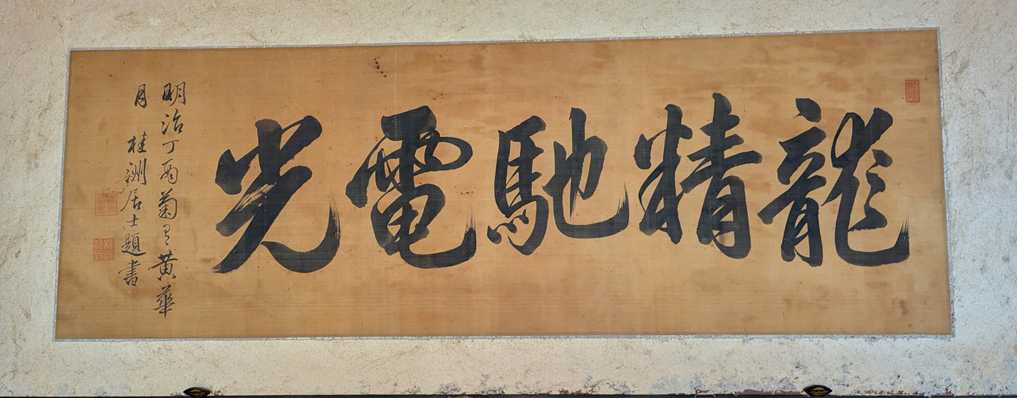 龍精馳電光
明治丁酉菊有黄華
月 桂洲居士題書